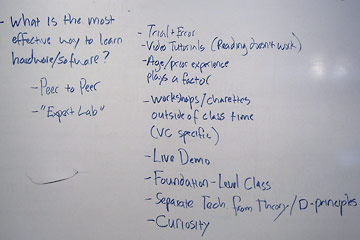 - What is the most
effective way to learn
hardware/sofware?
- Peer to Peer
- "Expert Lab"
- Trial + Error
- Video Tutorials (Reading doesn't work)
- Age/prior experience
plays a factor
- workshops/charettes
outside of class time
(VC specific)
- Live Demo
- Foundation-Level Class
- Separate Tech. from Theory/D-principles
- Curiosity